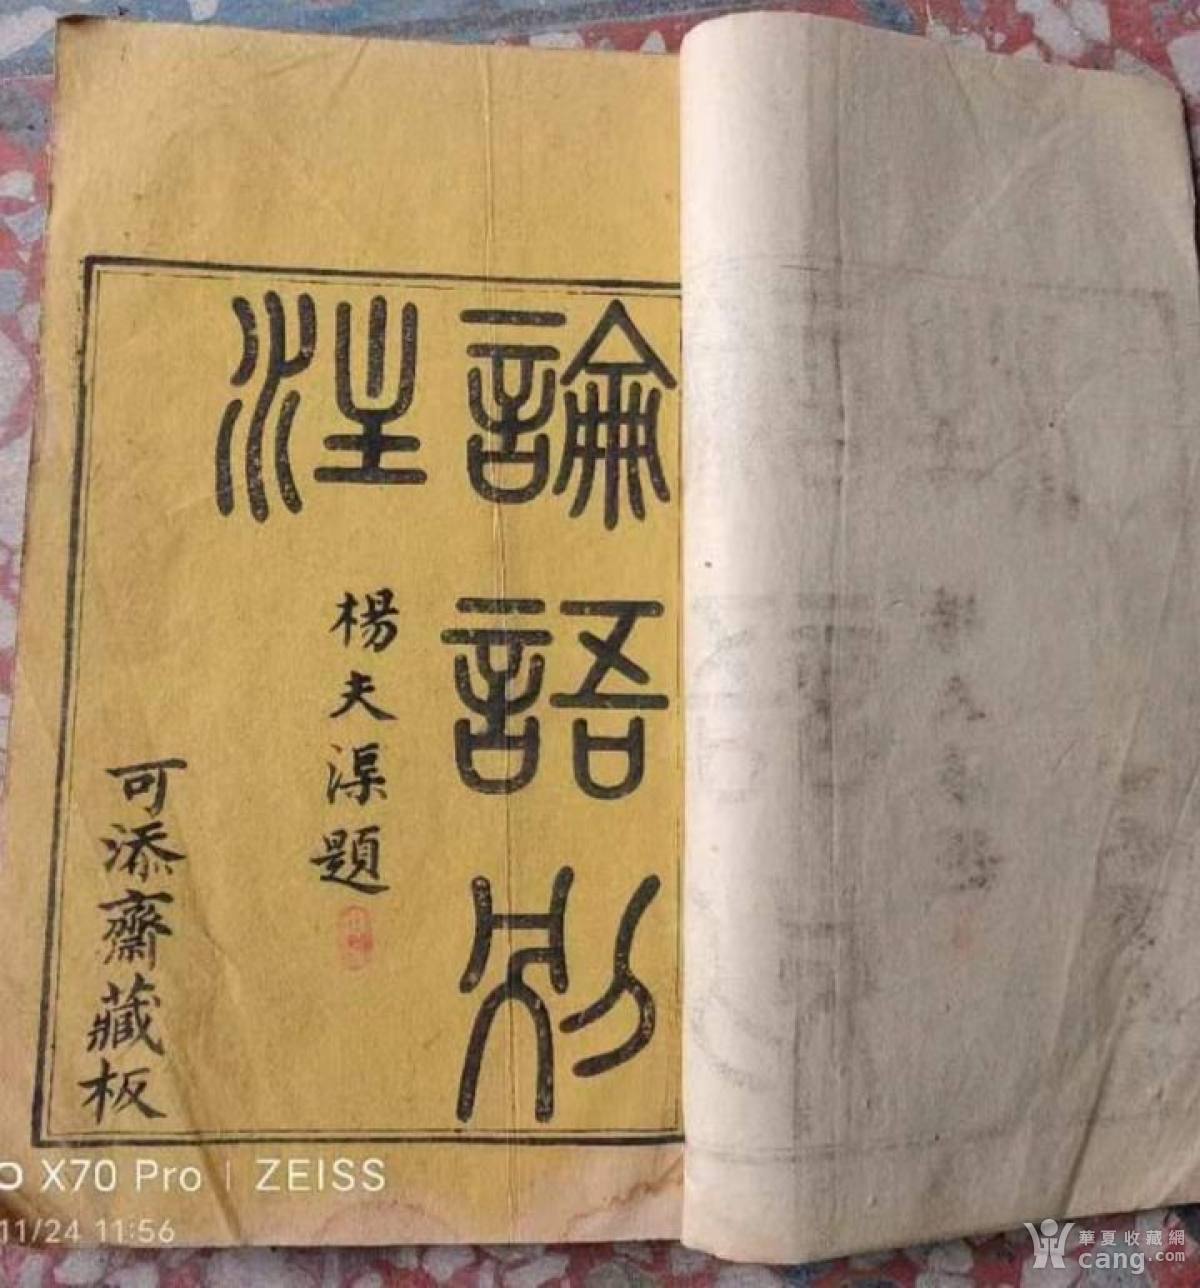 論語別
注
楊夫渠題
可添齋藏板
X70 Pro | ZEISS
11/24 11:56
華夏收藏網
cang.com